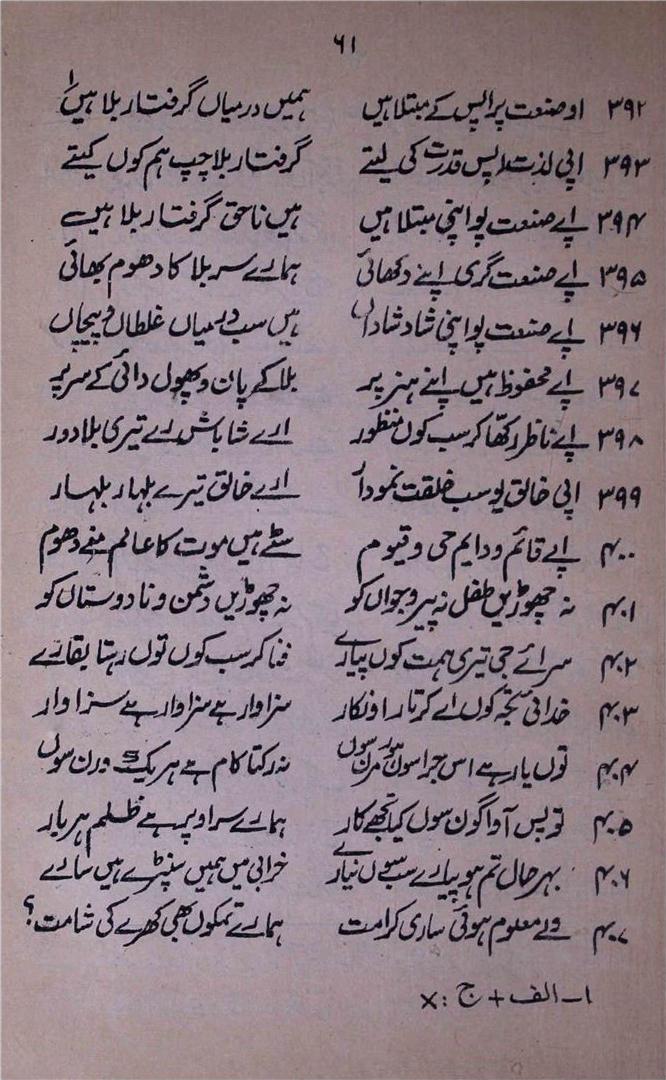 ۶۱
۳۹۲ او صنعت پر اپس کے مبتلا ہیں ہمیں درمیاں گرفتار بلا ہیں۱
۳۹۳ اپی لذت اپس قدرت کی لیتے گرفتار بلا چپ ہم کوں کیتے
۳۹۴ اپے صنعت پو اپنی مبتلا ہیں ہیں ناحق گرفتار بلا ہیں
۳۹۵ اپے صنعت گری اپنے دکھائی ہمارے سر بلا کا دھوم بھائی
۳۹۶ اپے صنعت پو اپنی شاد شاداں ہیں سب درمیاں غلطاں و پیچاں
۳۹۷ اپے محفوظ ہیں اپنے ہنر پر بلا کے پان و پھول دائی کے سر پر
۳۹۸ اپے ناظر رکھا کر سب کوں منظور ارے شاباش رے تیری بلا دور
۳۹۹ اپی خالق یو سب خلقت نمودار ارے خالق تیرے بلہار بلہار
۴۰۰ اپے قائم و دایم حی و قیوم سٹے ہیں موت کا عالم منے دھوم
۴۰۱ نہ چھوڑیں طفل نہ پیر و جواں کو نہ چھوڑیں دشمن و نا دوستاں کو
۴۰۲ سرائے جی تیری ہمت کوں پیارے فنا کر سب کوں توں رہتا بقا رے
۴۰۳ خدائی تجہ کوں اے کرتار اونکار سزاوار ہے سزاوار ہے سزاوار
۴۰۴ توں یار ہے اس جرا سوں ہور مرن سوں نہ رکتا کام ہے ہریک ورن سوں
۴۰۵ تو بس آواگون سوں کیا تجھے کار ہمارے سر اوپر ہے ظلم ہر بار
۴۰۶ بہر حال تم ہو پیارے سب سوں نیارے خرابی میں ہمیں سنپڑے ہیں سارے
۴۰۷ ولے معلوم ہوئی ساری کرامت ہمارے تمکوں بھی کھرے کی شامت؟
۱ـ الف + ج : x